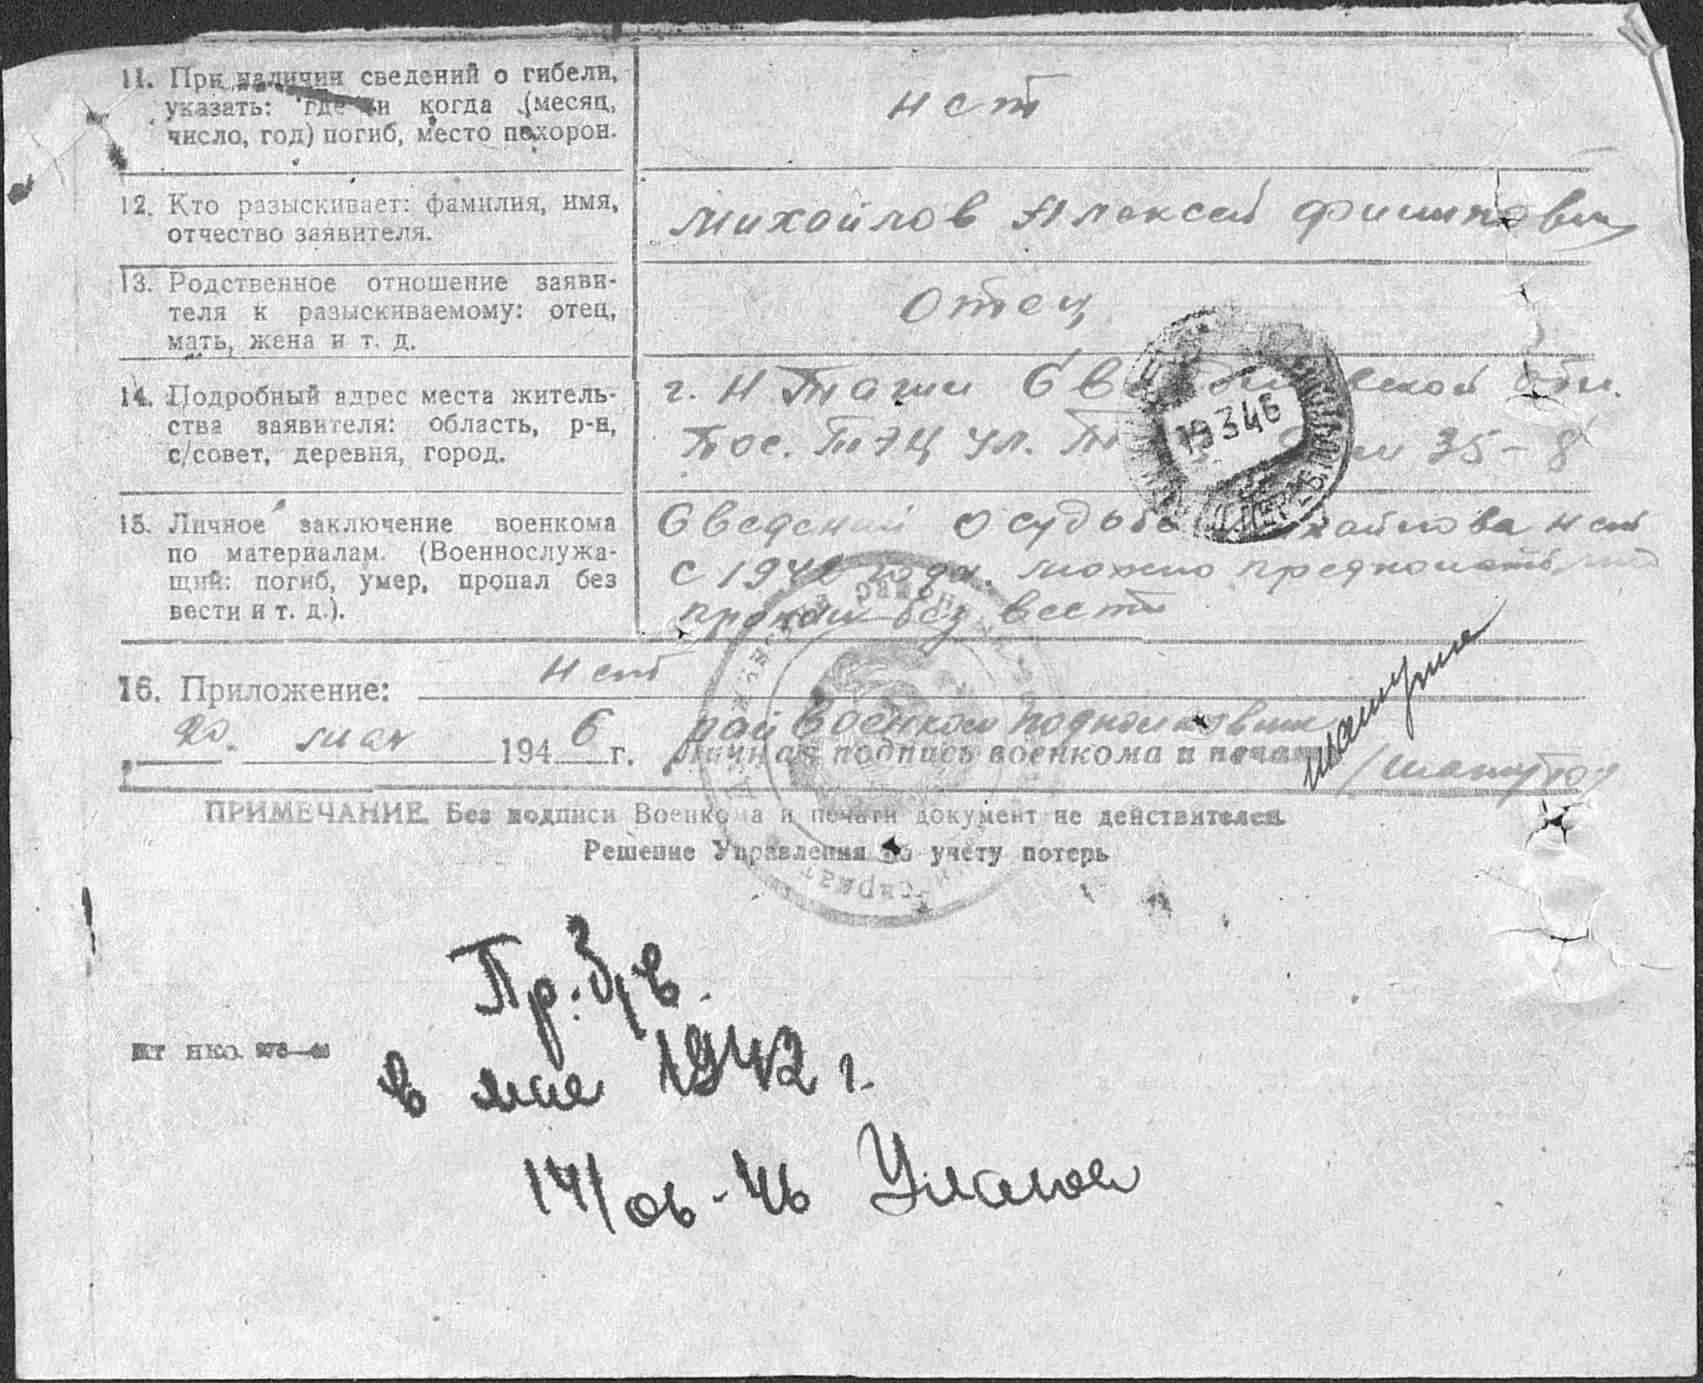 11. При наличии сведений о гибели,
указать: где и когда (месяц,
число, год) погиб, место похорон.
нет
12. Кто разыскивает: фамилия, имя,
отчество заявителя.
Михайлов Алексей
13. Родственное отношение заяви-
теля к разыскиваемому: отец,
мать, жена и т. д.
Отец
14. Подробный адрес места житель-
ства заявителя: область, р-н,
с/совет, деревня, город.
г. Н Тагил обл.
Пос. ТЭЦ ул. 35-8
19 3 46
15. Личное заключение военкома
по материалам. (Военнослужа-
щий: погиб, умер, пропал без
вести и т. д.).
Сведений о судьбе нет
с 1942 года. можно
пропал без вести
16. Приложение: нет
20. мая 1946 г. райвоенком подполковник
Личная подпись военкома и печать
ПРИМЕЧАНИЕ. Без подписи Военкома и печати документ не действителен.
Решение Управления по учету потерь
Пр. б/в.
в мае 1942 г.
НКО.